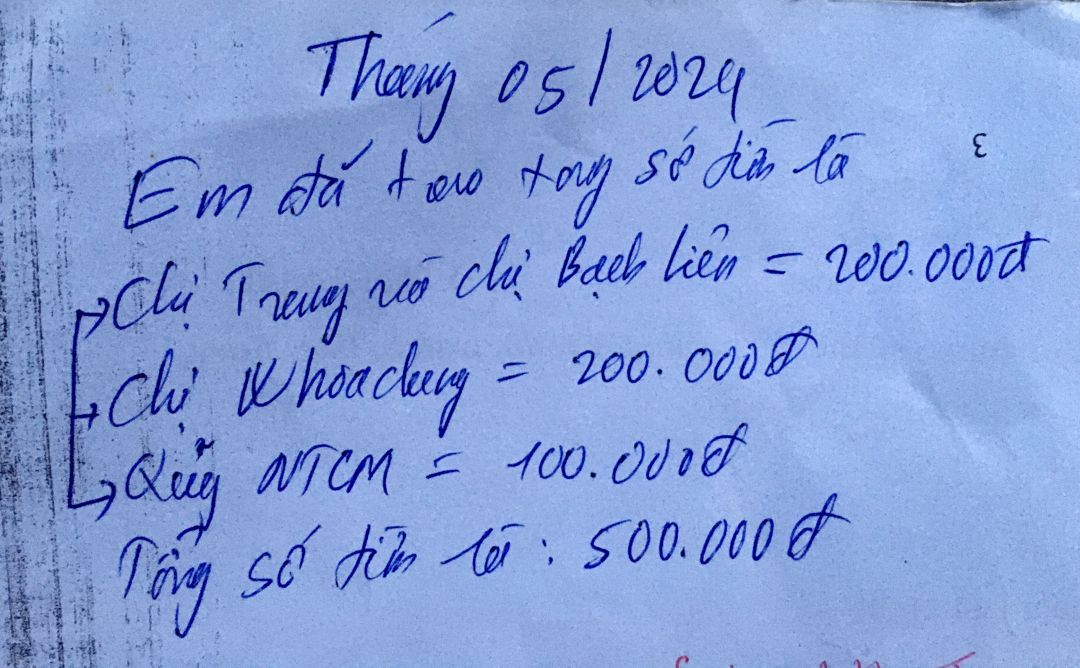 Tháng 05/2024
Em đã trao tổng số tiền là
Chị Trang và chị Bạch Liên = 200.000đ
Chị Khoadung = 200.000đ
Quỹ NTCM = 100.000đ
Tổng số tiền là : 500.000đ